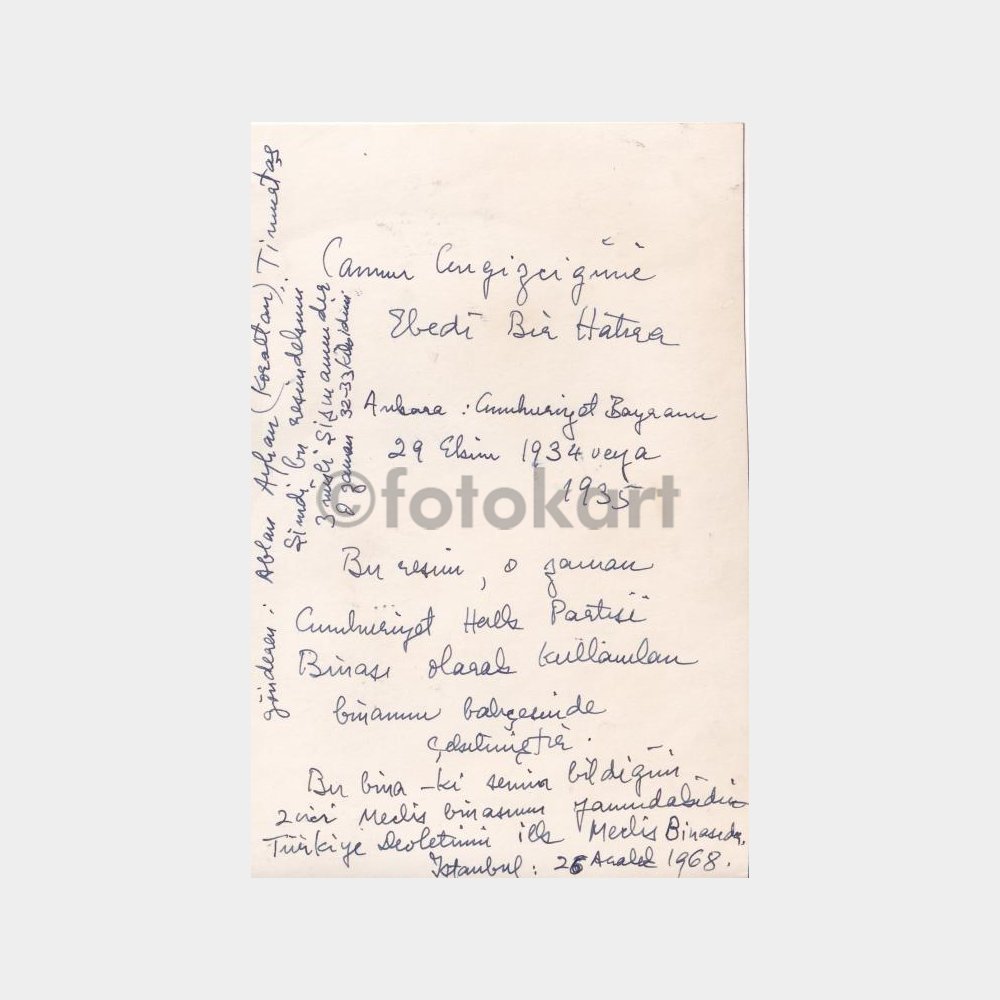 Canım Cengizciğime
Ebedî Bir Hâtıra
Ankara : Cumhuriyet Bayramı
29 Ekim 1934 veya
1935
©fotokart
Bu resim, o zaman
Cumhuriyet Halk Partisi
Binası olarak kullanılan
binanın bahçesinde
çekilmiştir.
Bu bina – ki senin bildiğin
2 inci Meclis binasının yanındakidir
Türkiye Devletinin ilk Meclis Binasıdır.
İstanbul : 26 Aralık 1968.
gönderen : Ablan Ayhan (Koraltan) Timurtaş
Şimdi bu resimdekinin
3 misli şişmanımdır
O zaman 32-33 kilo idim